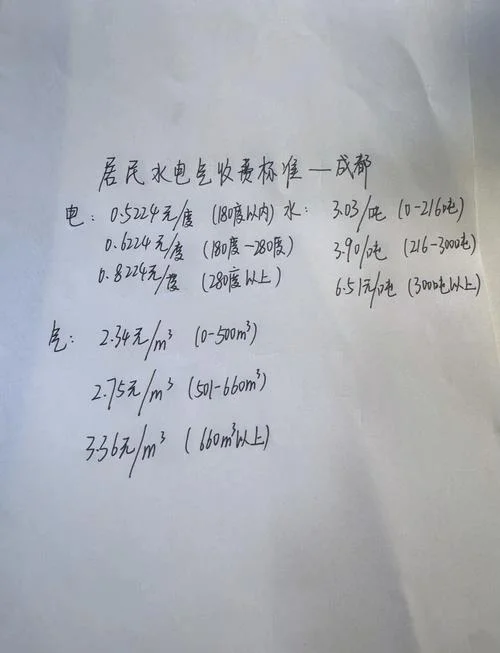 居民水电气收费标准—成都
电: 0.5224元/度 (180度以内) 水: 3.03/吨 (0-216吨)
0.6224元/度 (180度-280度) 3.90/吨 (216-300吨)
0.8224元/度 (280度以上) 6.51元/吨 (300吨以上)
气: 2.34元/m³ (0-500m³)
2.75元/m³ (501-660m³)
3.36元/m³ (660m³以上)